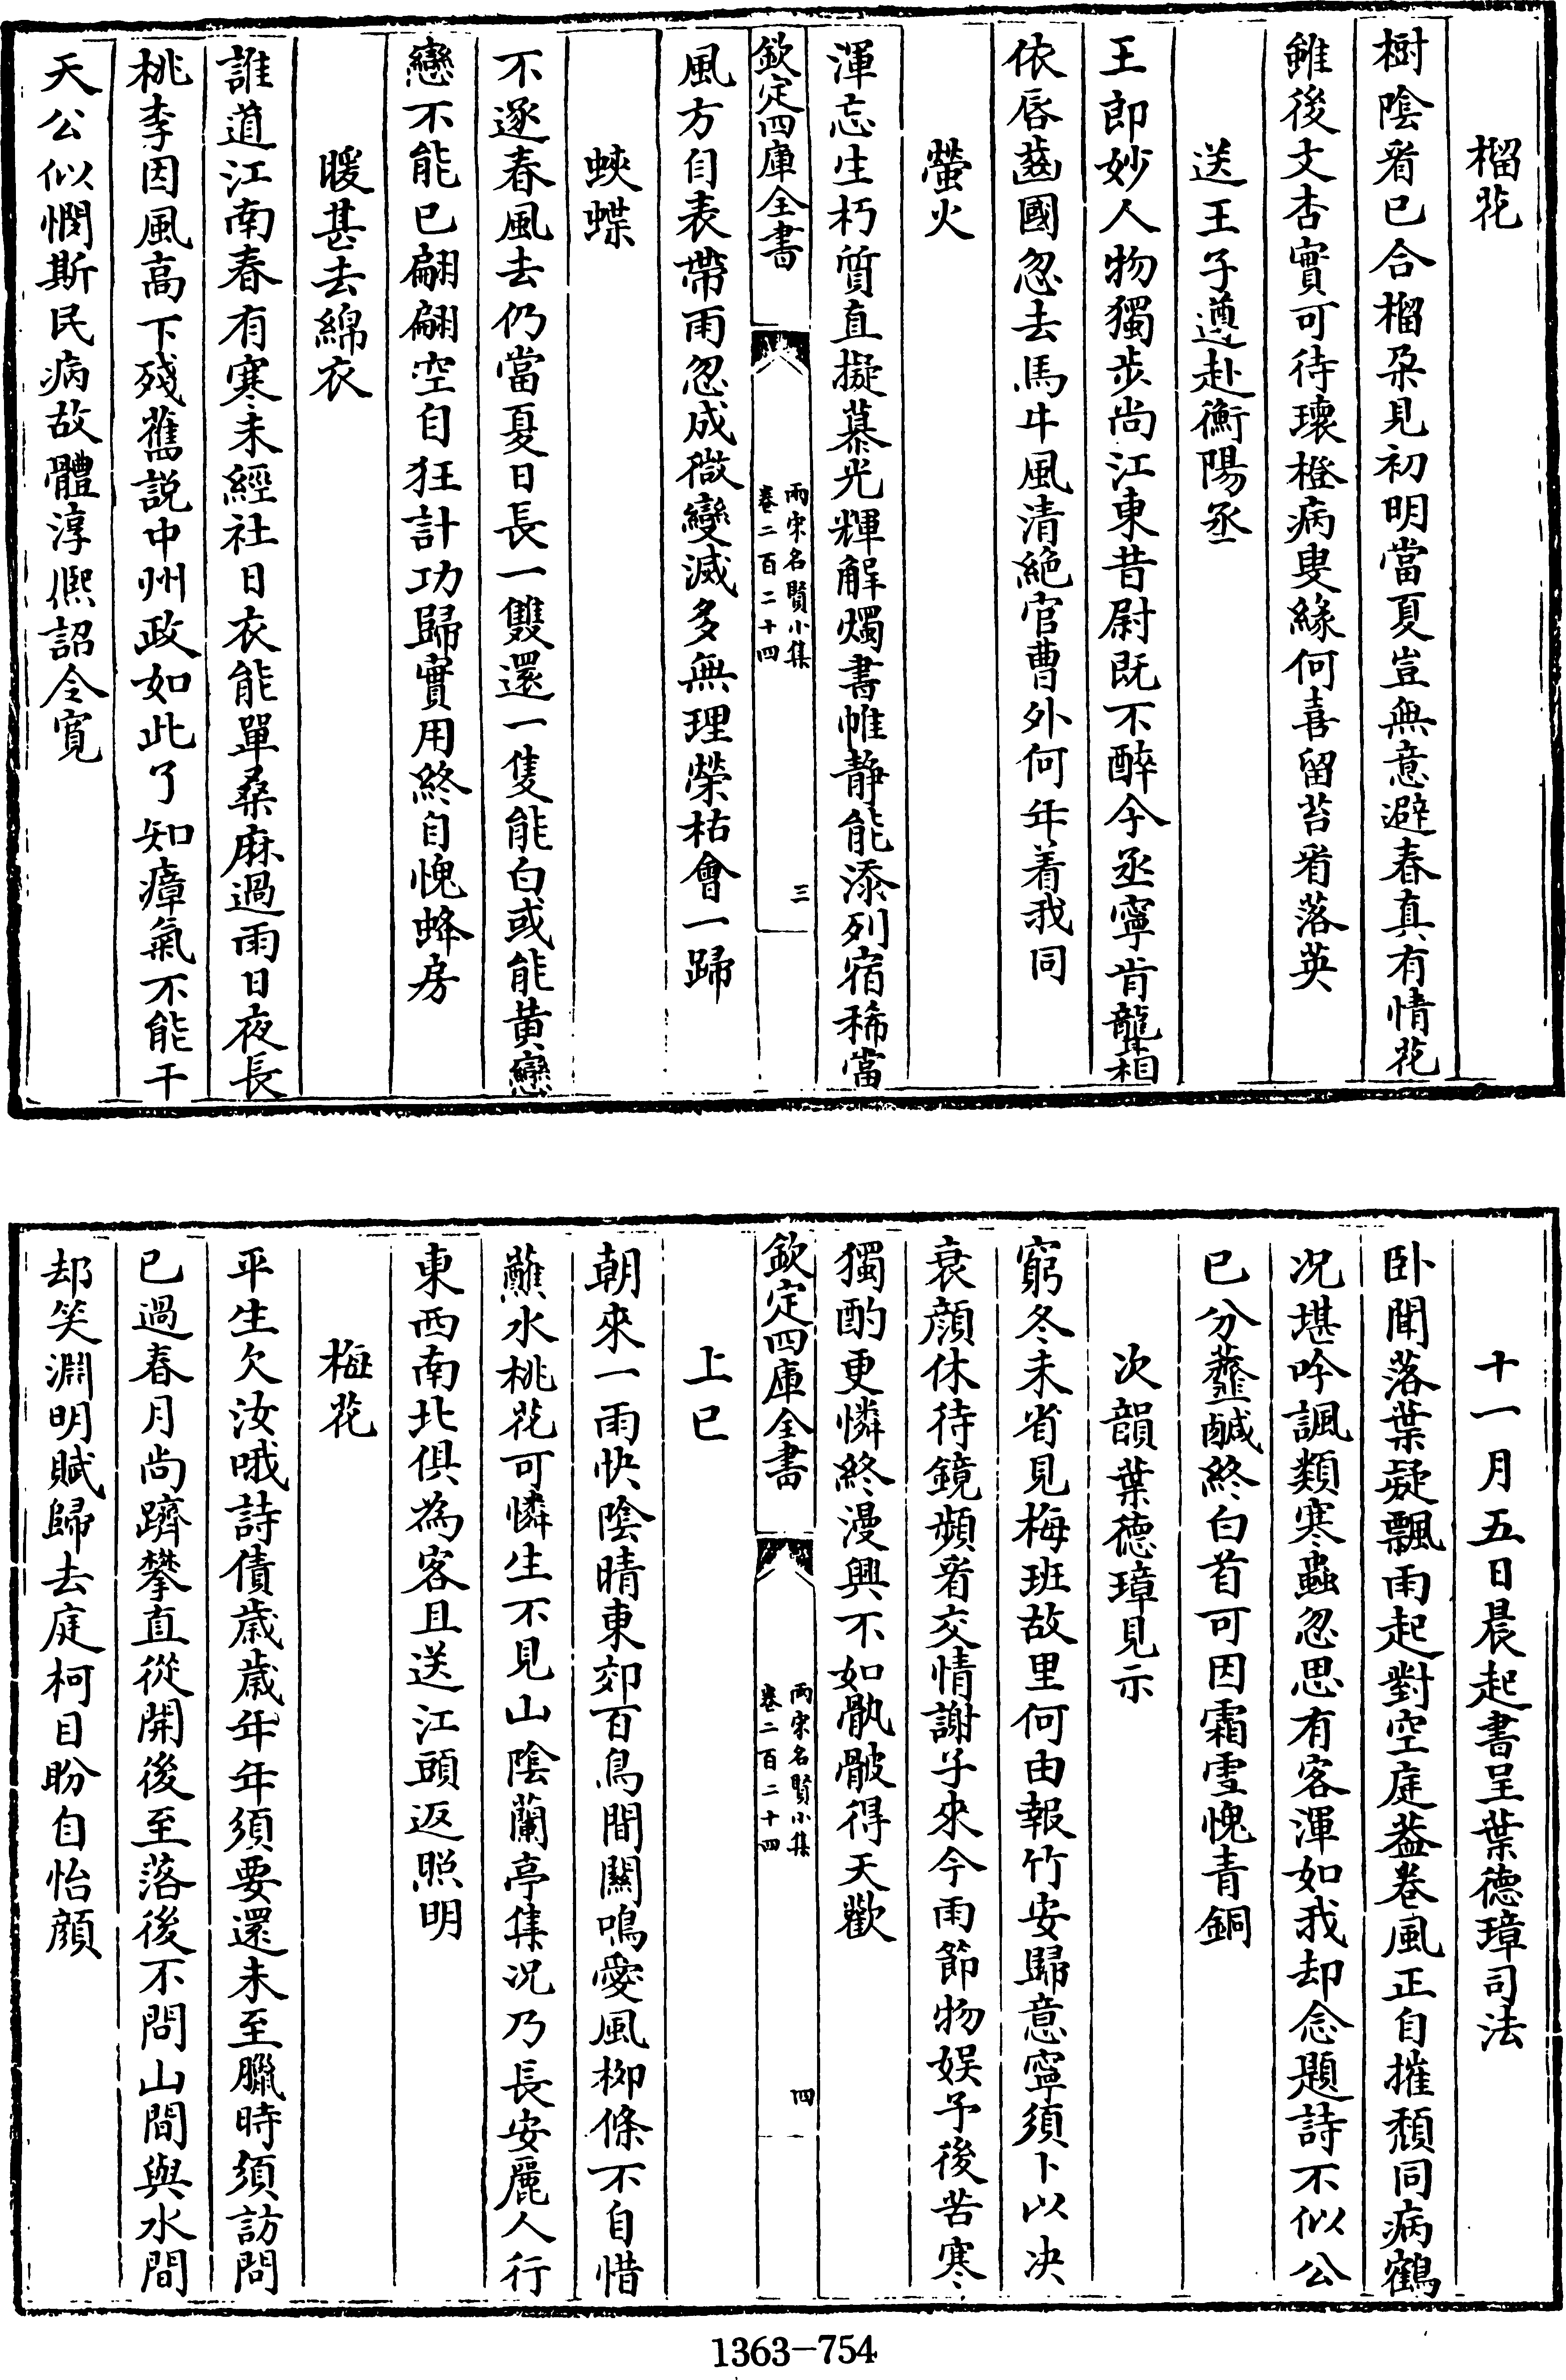 榴花
樹陰看已合榴朶見初明當夏豈無意避春真有情花
雖後文杏實可待壞橙病叟緣何喜留苔看落英
送王子遵赴衡陽丞
王郎妙人物獨步尚江東昔尉既不醉今丞寧肯聾相
依唇齒國忽去馬牛風清絶官曹外何年着我同
螢火
渾忘生朽質直擬慕光輝解燭書帷静能添列宿稀當
欽定四庫全書
兩宋名賢小集
卷二百二十四
三
風方自表帶雨忽成微變滅多無理榮枯會一歸
蛺蝶
不逐春風去仍當夏日長一雙還一隻能白或能黄戀
戀不能已翩翩空自狂計功歸實用終自愧蜂房
暖甚去綿衣
誰道江南春有寒未經社日衣能單桑麻過雨日夜長
桃李因風高下殘舊説中州政如此了知瘴氣不能干
天公似憫斯民病故體淳熈詔令寛
十一月五日晨起書呈葉德璋司法
卧聞落葉疑飄雨起對空庭葢卷風正自摧頹同病鶴
况堪吟諷類寒蟲忽思有客渾如我却念題詩不似公
已分虀鹹終白首可因霜雪愧青銅
次韻葉德璋見示
窮冬未省見梅班故里何由報竹安歸意寧須卜以决
衰顔休待鏡頻看交情謝子來今雨節物娱予後苦寒
獨酌更憐終漫興不如骩骳得天歡
欽定四庫全書
兩宋名賢小集
卷二百二十四
四
上已
朝來一雨快陰晴東郊百鳥間關鳴愛風柳條不自惜
蘸水桃花可憐生不見山陰蘭亭集况乃長安麗人行
東西南北俱為客且送江頭返照明
梅花
平生欠汝哦詩債歲歲年年須要還未至臘時須訪問
已過春月尚躋攀直從開後至落後不問山間與水間
却笑淵明賦歸去庭柯目盼自怡顔
1363-754